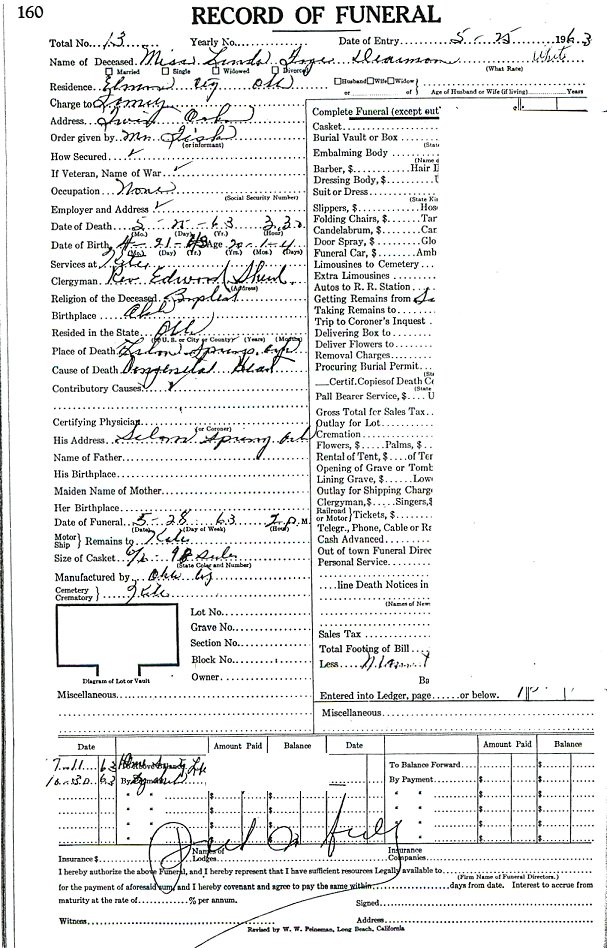 160
RECORD OF FUNERAL
Total No. 13 Yearly No. Date of Entry 5-25 1963
Name of Deceased Miss Linda Dearmon White
Married Single Widowed Divorced (What Race)
Residence Okla Husband Wife Widow
or of Age of Husband or Wife (if living) Years
Charge to Family
Address
Order given by Mr.
(or informant)
How Secured ✓
If Veteran, Name of War ✓
Occupation None
(Social Security Number)
Employer and Address ✓
Date of Death 5-25-63 3:30
(Mo.) (Day) (Yr.) (Hour)
Date of Birth 4-21-43 Age 20-1-4
(Mo.) (Day) (Yr.) (Yrs.) (Mos.) (Days)
Services at
Clergyman Rev. Edward
(Address)
Religion of the Deceased Baptist
Birthplace Okla
Resided in the State Okla
(or U. S. or City or County) (Years) (Months)
Place of Death Siloam Springs, Ark
Cause of Death Congenital Heart
Contributory Causes ✓
Certifying Physician
(or Coroner)
His Address Siloam Springs, Ark
Name of Father
His Birthplace
Maiden Name of Mother
Her Birthplace
Date of Funeral 5-28-63 2 P.M
(Date) (Day of Week) (Hour)
Motor Ship } Remains to
Size of Casket
(State Color and Number)
Manufactured by Okla
Cemetery Crematory }
Lot No.
Grave No.
Section No.
Block No.
Owner
Diagram of Lot or Vault
Miscellaneous
Complete Funeral (except out
Casket
Burial Vault or Box
(Stat
Embalming Body
(Name o
Barber, $ Hair D
Dressing Body, $
Suit or Dress
(State Ki
Slippers, $ Hos
Folding Chairs, $ Tar
Candelabrum, $ Car
Door Spray, $ Glo
Funeral Car, $ Amb
Limousines to Cemetery
Extra Limousines
Autos to R. R. Station
Getting Remains from
Taking Remains to
Trip to Coroner's Inquest
Delivering Box to
Deliver Flowers to
Removal Charges
Procuring Burial Permit
(Sta
Certif. Copies of Death Ce
(State
Pall Bearer Service, $ U
Gross Total for Sales Tax
Outlay for Lot
Cremation
Flowers, $ Palms, $
Rental of Tent, $ of Ter
Opening of Grave or Tomb
Lining Grave, $ Lowe
Outlay for Shipping Charg
Clergyman, $ Singers, $
Railroad or Motor } Tickets, $
Telegr., Phone, Cable or Ra
Cash Advanced
Out of town Funeral Direc
Personal Service
line Death Notices in
(Names of New
Sales Tax
Total Footing of Bill
Less
Ba
Entered into Ledger, page or below.
Miscellaneous
Date Amount Paid Balance Date Amount Paid Balance
7-11 63 To Balance Forward $
10-30 63 By Payment By Payment $ $
" " $ $ " " $ $
" " $ $ " " $ $
" " $ $ " " $ $
" " $ $ " " $ $
Paid in full
Insurance $ Names of Lodges Insurance Companies
I hereby authorize the above Funeral, and I hereby represent that I have sufficient resources Legally available to
(Firm Name of Funeral Directors.)
for the payment of aforesaid sum, and I hereby covenant and agree to pay the same within days from date. Interest to accrue from
maturity at the rate of % per annum. Signed
Witness Address
Revised by W. W. Peineman, Long Beach, California